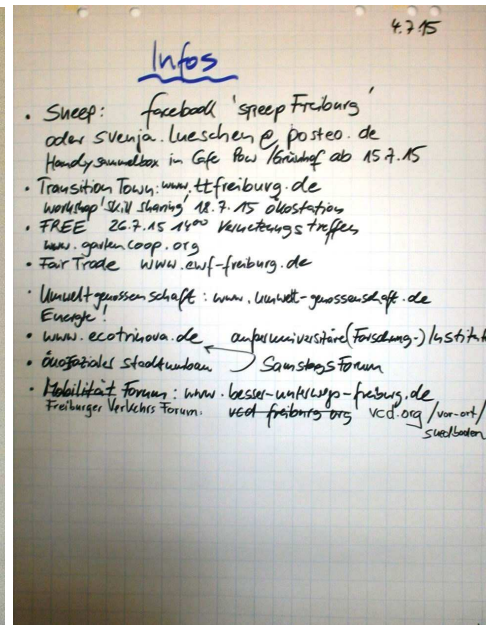 4.7.15
Infos
• Sneep: facebook 'sneep Freiburg'
oder svenja.lueschen@posteo.de
Handysammelbox in Cafe Pow /Grünhof ab 15.7.15
• Transition Town: www.ttfreiburg.de
workshop 'skill sharing' 18.7.15 ökostation
• FREE 26.7.15 14⁰⁰ Vernetzungstreffen
www.gartencoop.org
• Fair Trade www.ewf-freiburg.de
• Umweltgenossenschaft: www.umwelt-genossenschaft.de
Energie!
• www.ecotrinova.de außeruniversitäre (Forschung-) Institut
• ökosozialer Stadtumbau Samstags Forum
• Mobilität Forum: www.besser-unterwegs-freiburg.de
Freiburger Verkehrs Forum: vcd freiburg org vcd.org/vor-ort/
suedbaden